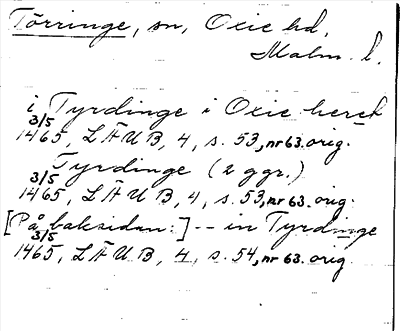 Törringe, sn, Oxie hd,
Malm. l.
i Tyrdinge i Oxie heret
3/5
1465, LÄUB, 4, s. 53, nr 63. orig.
Tyrdinge (2 ggr.)
3/5
1465, LÄUB, 4, s. 53, nr 63. orig.
[På baksidan:] -- in Tyrdinge
3/5
1465, LÄUB, 4, s. 54, nr 63. orig.